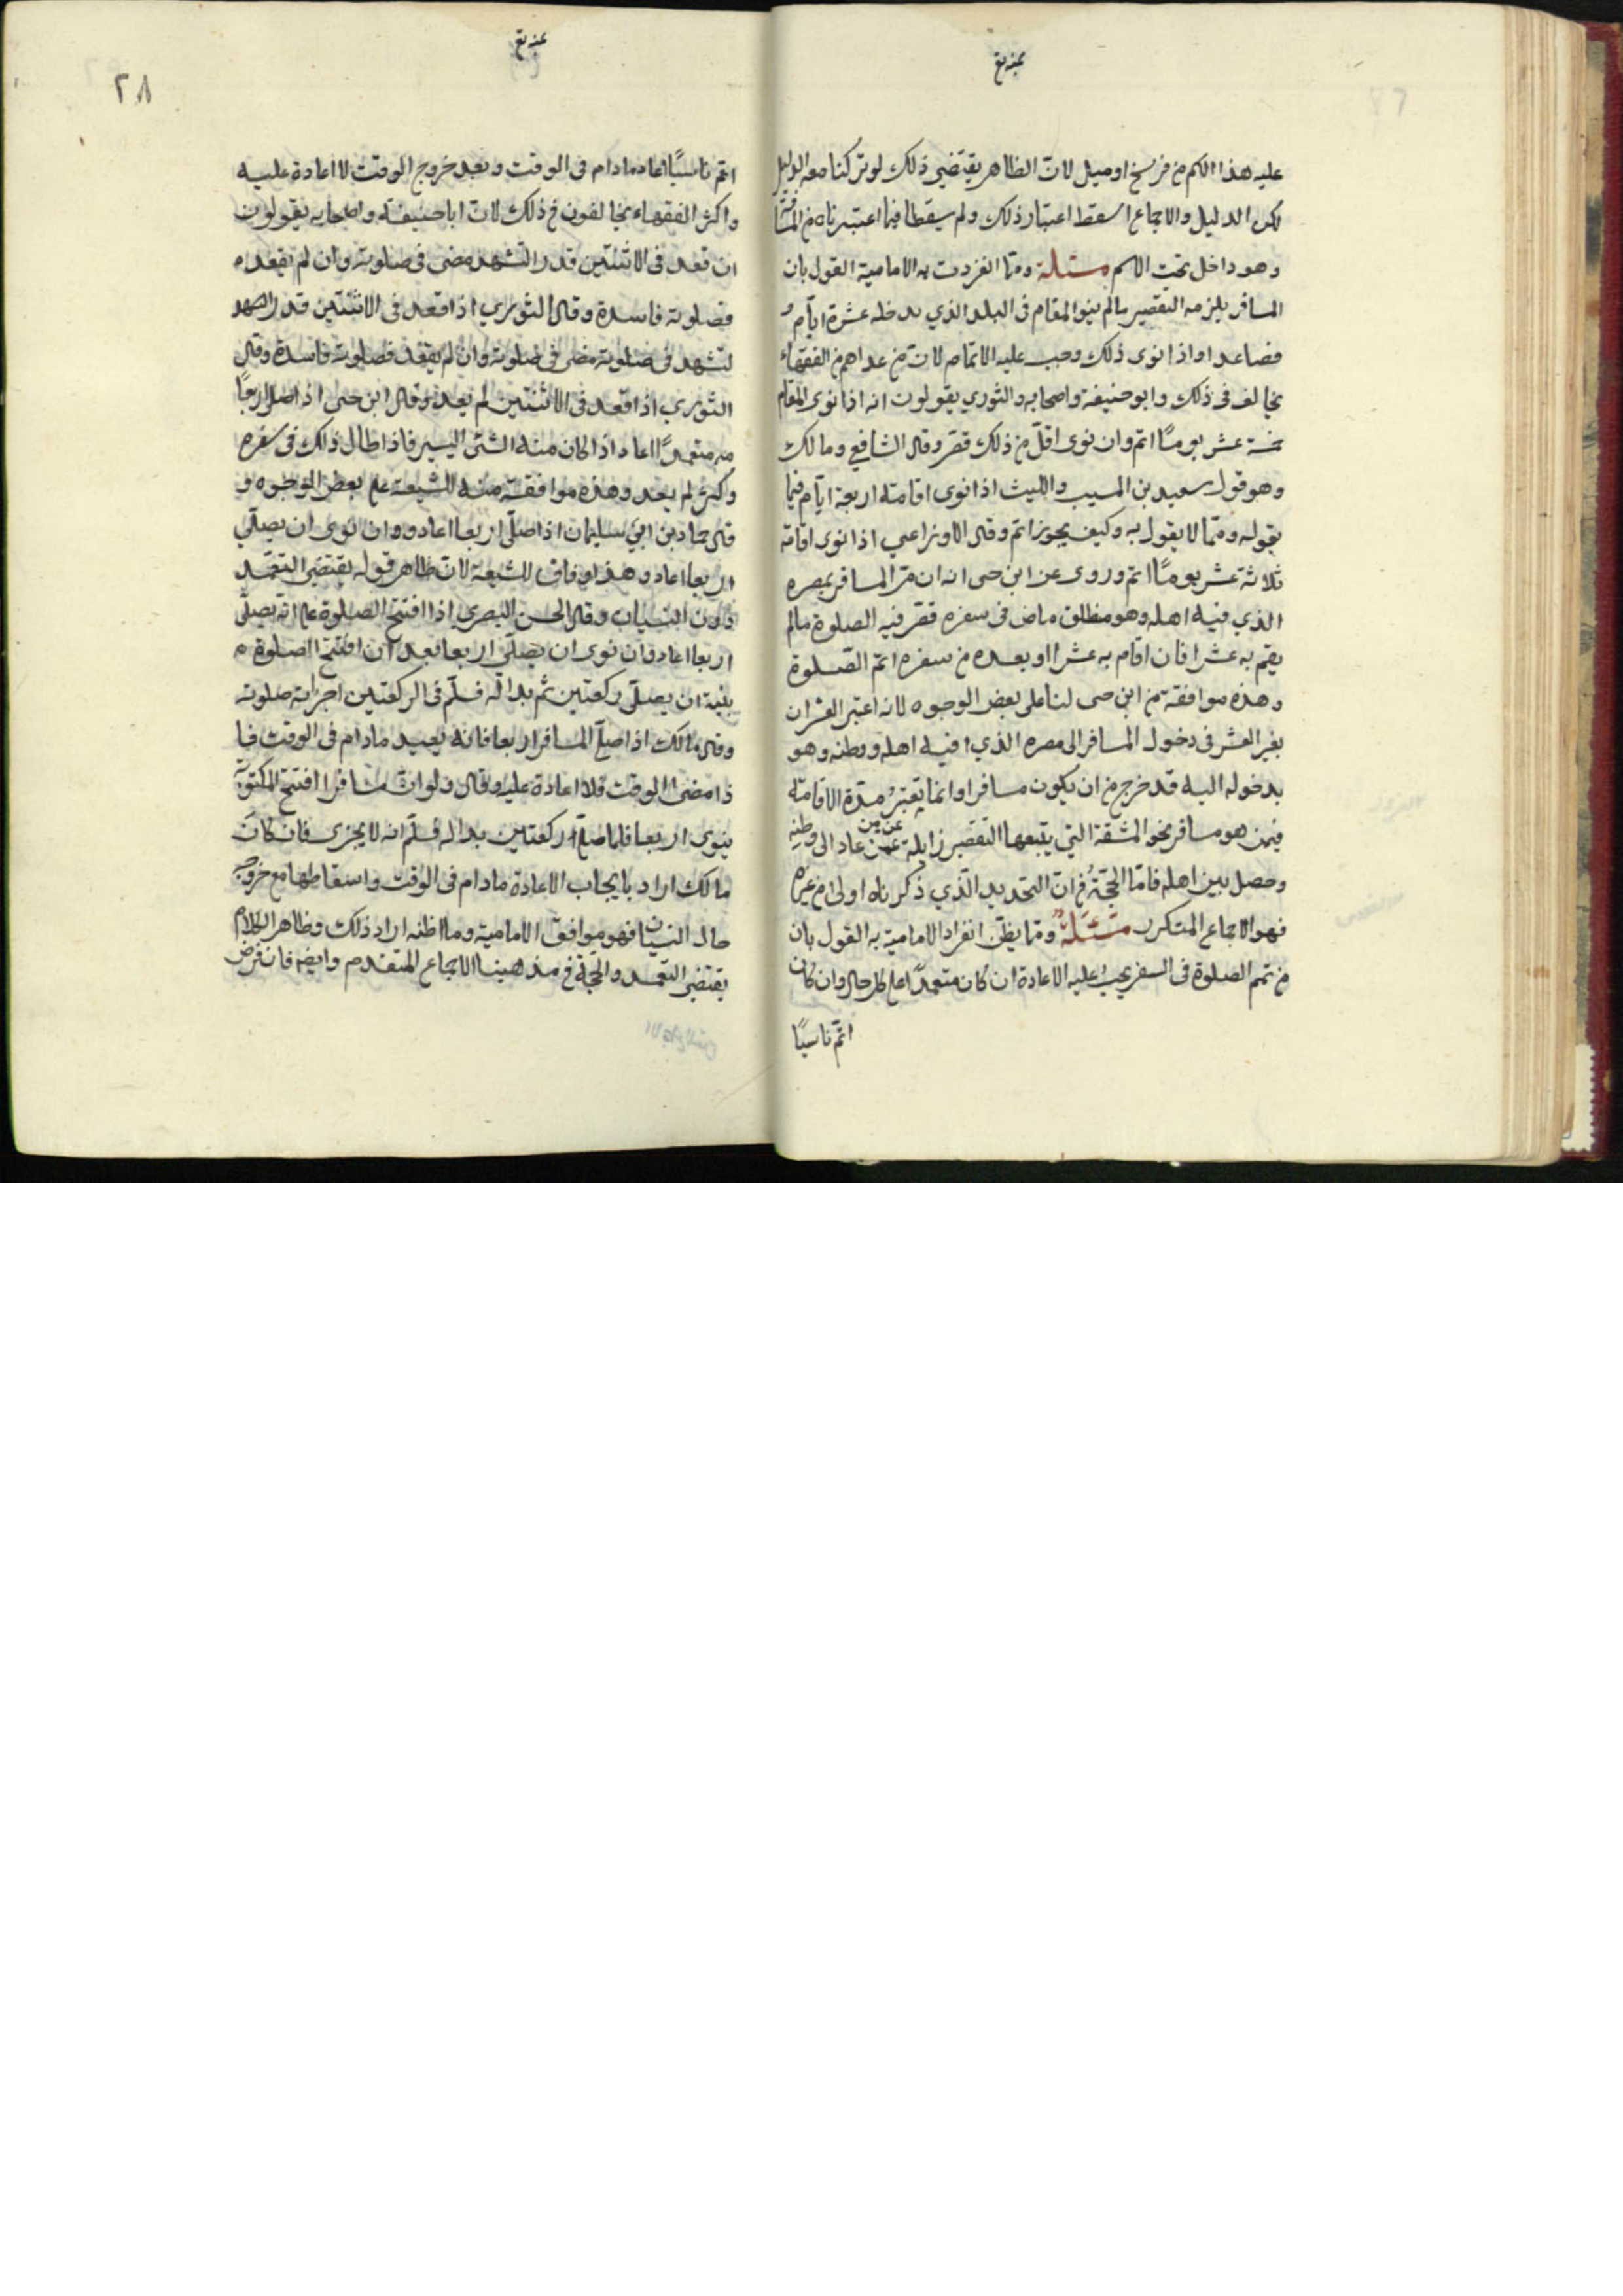 عليه هذا الكم من فرسخ او ميل لانّ الظاهر يقتضي ذلك لو تركنا معه الدليل
لكن الدليل والاجماع اسقط اعتبار ذلك ولم يسقطا فيما اعتبرناه من المسافة
وهو داخل تحت الاسم مسئلة وممّا انفردت به الامامية القول بان
المسافر يلزمه التقصير مالم ينو المقام في البلد الذي يدخله عشرة ايّام
فصاعدا واذا نوى ذلك وجب عليه الاتمام لانّ من عداهم من الفقهاء
يخالف في ذلك وابو حنيفة واصحابه والثوري يقولون انه اذا نوى المقام
خمسة عشر يومًا اتم وان نوى اقلّ من ذلك قصر وقال الشافعي ومالك
وهو قول سعيد بن المسيب والليث اذا نوى اقامة اربعة ايّام فيما
يقوله وممّا لا يقول به وكيف يجوز اتم وقال الاوزاعي اذا نوى اقامة
ثلاثة عشر يومًا اتم وروى عن ابن حى انه ان مرّ المسافر بمصره
الذي فيه اهله وهو منطلق ماض في سفره قصر فيه الصلوة مالم
يقم به عشرا فان اقام به عشرا او بعده من سفره اتمّ الصّلوة
وهذه موافقة من ابن حى لنا على بعض الوجوه لانه اعتبر العشر ان
بغير العشر في دخول المسافر الى مصره الذي فيه اهله ووطنه وهو
بدخوله اليه قد خرج من ان يكون مسافرا وانما يعتبر مدّة الاقامة
فيمن هو مسافر نحو المشقة التي يتبعها التقصير زايلة عمن عاد الى وطنه
عن من
وحصل بين اهله فامّا الحجّة من انّ التحديد الّذي ذكرناه اولى من غيره
فهو الاجماع المتكرر مسئلة وممّا يظنّ انفراد الامامية به القول بان
من تمم الصلوة في السفر يجب عليه الاعادة ان كان متعمدًا على كل حال وان كان
اتمّ ناسيًا
٢٨
اتم ناسيًا اعاد مادام في الوقت وبعد خروج الوقت لا اعادة عليه
واكثر الفقهاء يخالفون في ذلك لانّ ابا حنيفة واصحابه يقولون
ان قعد في الاثنتين قدر التشهد مضى في صلوته وان لم يقعد
فصلوته فاسدة وقال الثوري اذا قعد في الاثنتين قدر التشهد
لتشهد في صلوته مضى في صلوته وان لم يقعد فصلوته فاسدة وقال
الثوري اذا قعد في الاثنتين لم يعد وقال ابن حى اذا صلى اربعًا
متعمدًا اعاد اذا كان منه الشئ اليسير فاذا طال ذلك في سفره
وكثر لم يعد وهذه موافقة منه للشيعة على بعض الوجوه و
قال حماد بن ابي سليمان اذا صلّى اربعا اعاد وان نوى ان يصلّي
اربعا اعاد وهذا وفاق للشيعة لانّ ظاهر قوله يقتضي التعمّد
دون النسيان وقال الحسن البصري اذا افتتح الصلوة على انّه يصلّي
اربعا اعاد وان نوى ان يصلّي اربعا بعد ان افتتح الصلوة
بنية ان يصلّي ركعتين ثم بدا له فسلّم في الركعتين اجزاته صلوته
وقال مالك اذا صلّى المسافر اربعا فانه يعيد مادام في الوقت فا
ذا مضى الوقت فلا اعادة عليه وقال ولو انّ مسافرا افتتح المكتوبة
ينوى اربعا فلما صلّى ركعتين بدا له فسلّم انه لا يجزى فان كان
مالك اراد بايجاب الاعادة مادام في الوقت واسقاطها مع خروجه
حال النسيان فهو موافق الامامية وما اظنه اراد ذلك وظاهر الكلام
يقتضي التعمد والحجّة في مذهبنا الاجماع المتقدم وايضا فان فرض